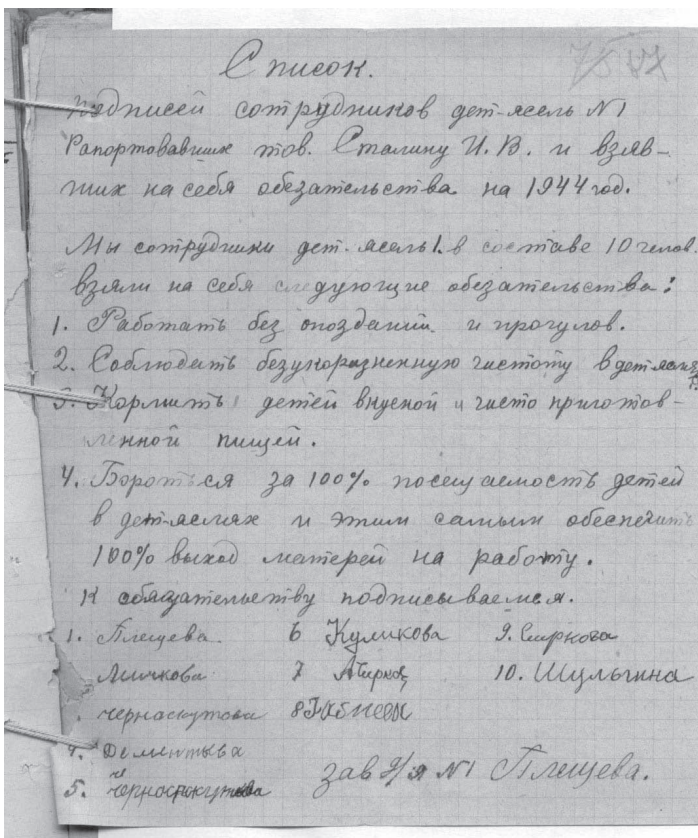 Список.
Подписей сотрудников дет-ясель №1
Рапортовавших тов. Сталину И. В. и взяв-
ших на себя обезательства на 1944 год.
Мы сотрудники дет. ясель 1. в составе 10 челов.
взяли на себя следующие обезательства:
1. Работать без опозданий и прогулов.
2. Соблюдать безукоризненную чистоту в дет-яслях
3. Кормить детей вкусной и чисто приготов-
ленной пищей.
4. Бороться за 100% посещаемость детей
в дет-яслях и этим самым обеспечить
100% выход матерей на работу.
К обязательству подписываемся.
1. Плещева 6 Куликова 9. Смирнова
Личкова 7 10. Шульгина
Черноскутова 8
4. Дементьева
5.
зав д/я №1 Плещева.